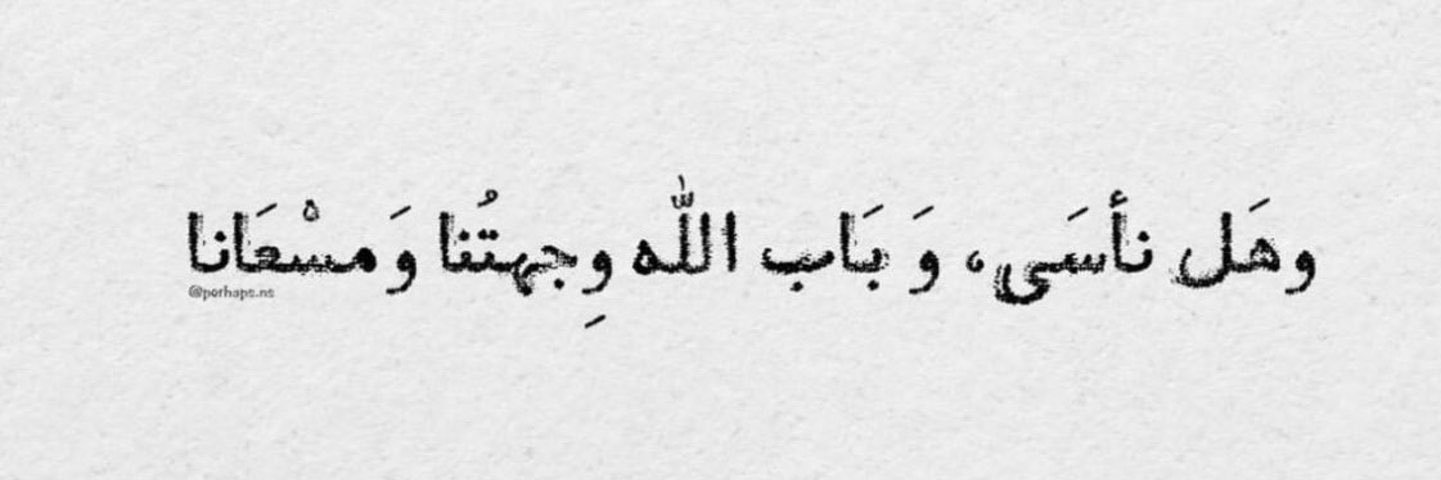 وهَل نأسَى، وَ بَاب اللّٰه وِجهتُنا وَ مسْعَانا
@perhaps.ns